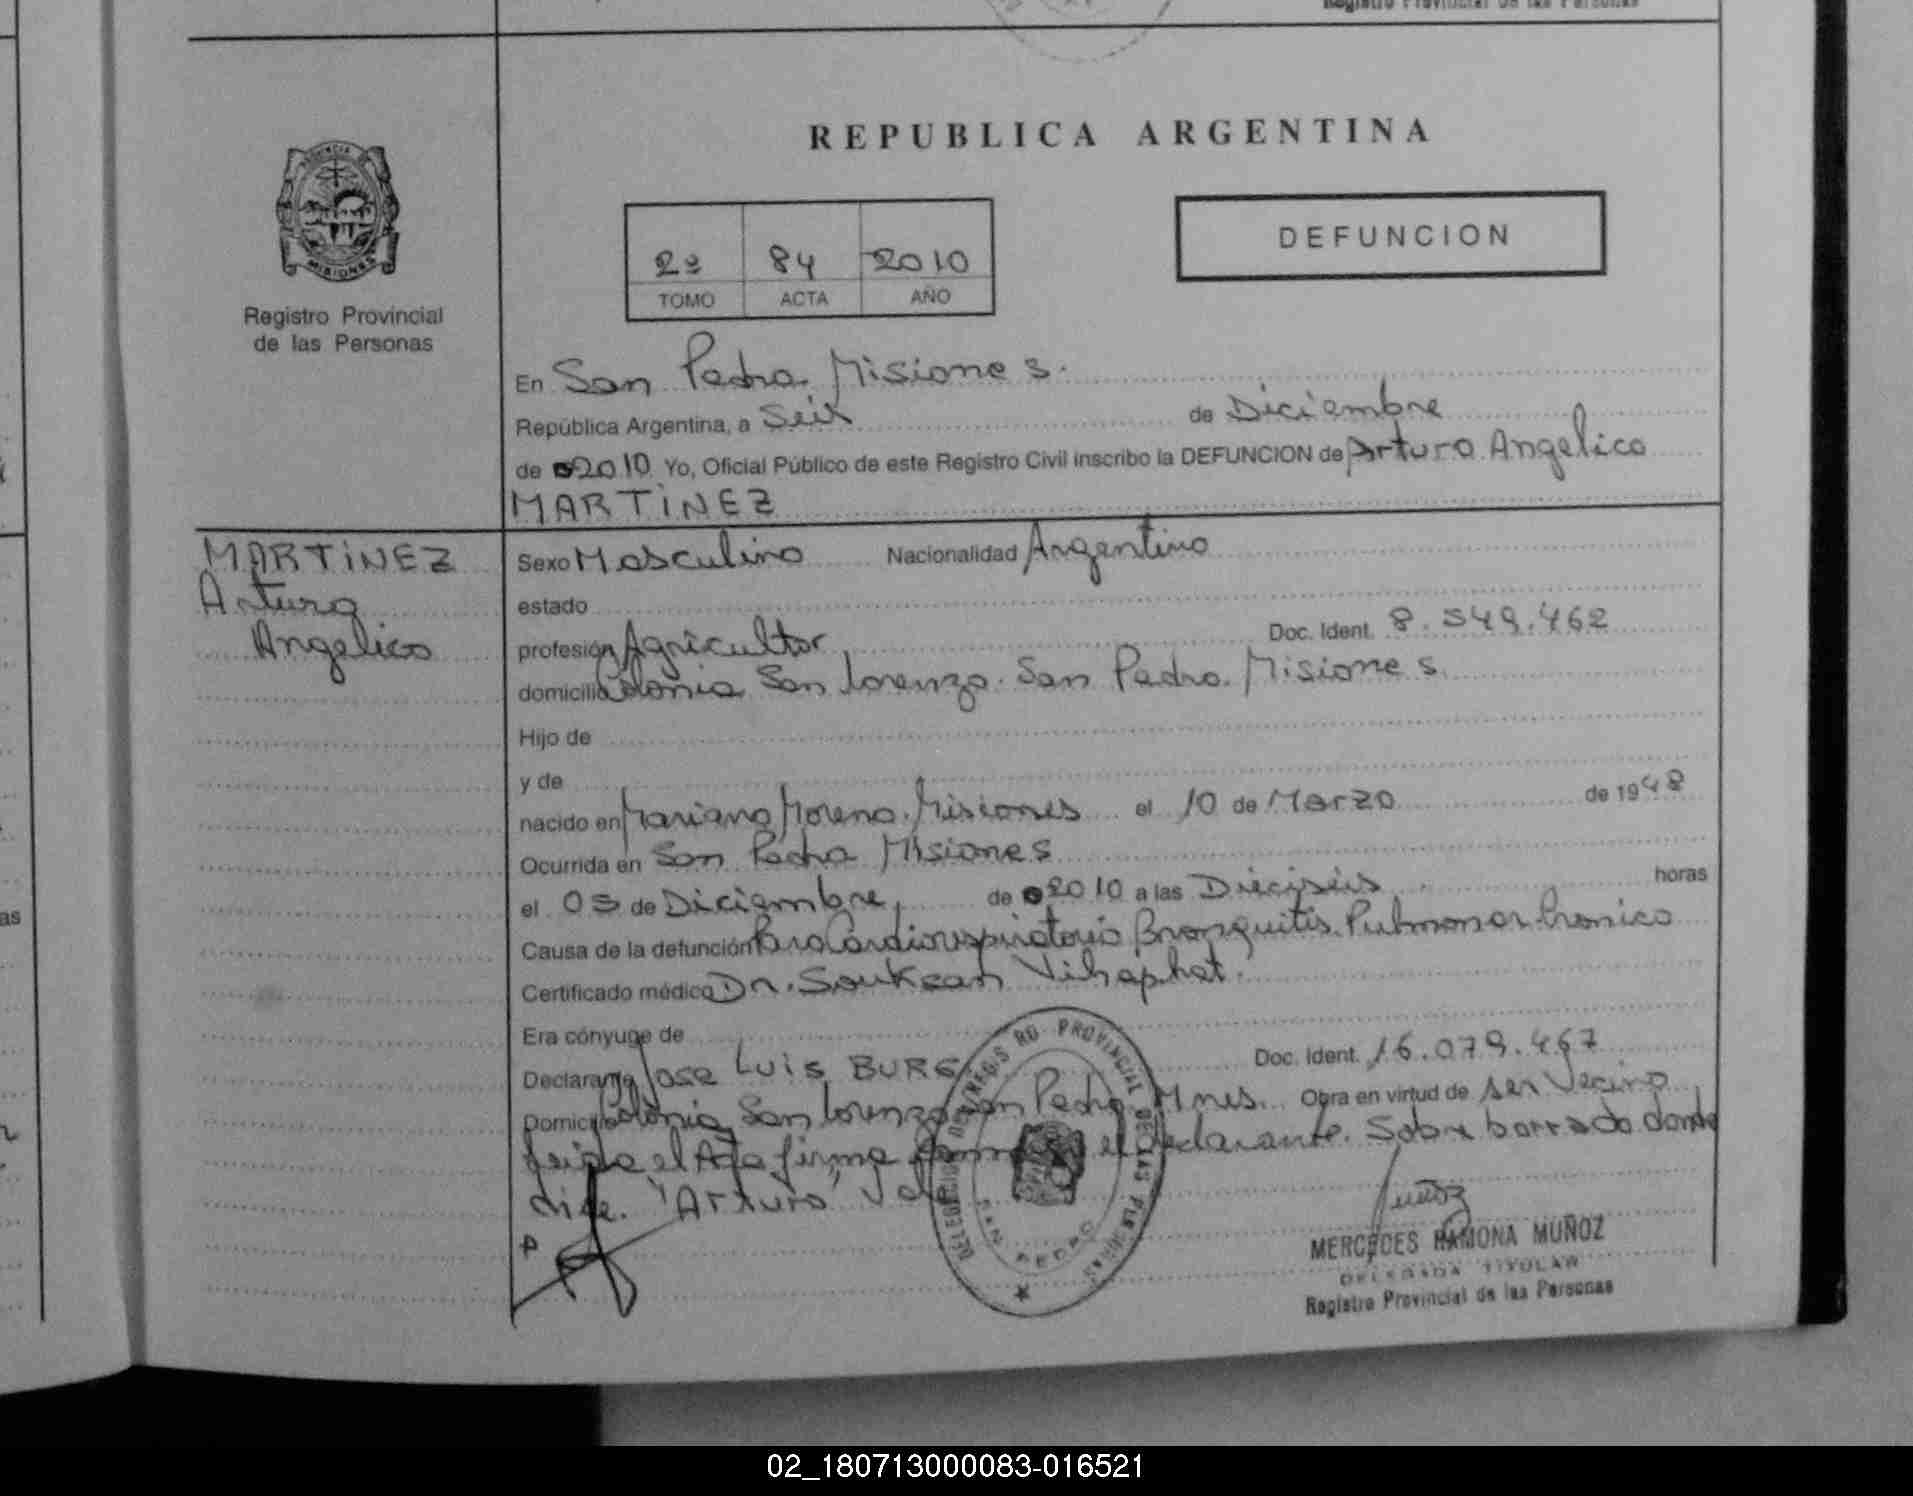 Registro Provincial de las Personas
PROVINCIA DE
MISIONES
Registro Provincial
de las Personas
REPUBLICA ARGENTINA
2º 84 2010
TOMO ACTA AÑO
DEFUNCION
En San Pedro Misiones.
República Argentina, a Seis de Diciembre
de 2010 Yo, Oficial Público de este Registro Civil inscribo la DEFUNCION de Arturo Angelico
MARTiNEZ
MARTiNEZ
Arturo
Angelico
Sexo Masculino Nacionalidad Argentino
estado
profesión Agricultor Doc. Ident. 8.549.462
domicilio Colonia San Lorenzo. San Pedro. Misiones.
Hijo de
y de
nacido en Mariano Moreno. Misiones el 10 de Marzo de 1948
Ocurrida en San Pedro Misiones
el 05 de Diciembre, de 2010 a las Dieciseis horas
Causa de la defunción Paro Cardiorespiratorio Bronquitis Pulmonar Cronico
Certificado médico Dr. Soukean Vihaphat.
Era cónyuge de
Declarante Jose LUiS BURG Doc. Ident. 16.079.467
Domicilio Colonia San Lorenzo San Pedro Mnes. Obra en virtud de ser Vecino
Leida el Acta firma el declarante. Sobre borrado donde
dice. "Arturo" Vale
DELEGACION DEL REGISTRO PROVINCIAL DE LAS PERSONAS
SAN PEDRO
Muñoz
MERCEDES RAMONA MUÑOZ
DELEGADA TITULAR
Registro Provincial de las Personas
02_180713000083-016521